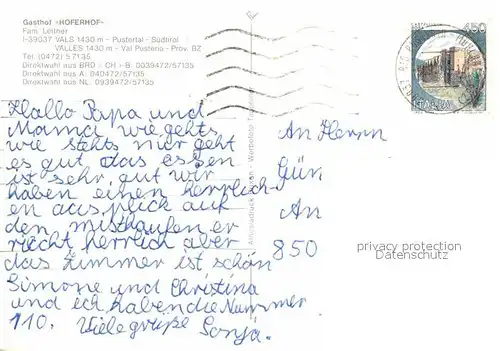 Gasthof «HOFERHOF»
Fam. Leitner
I-39037 VALS 1430 m - Pustertal - Südtirol
VALLES 1430 m - Val Pusteria - Prov. BZ
Tel. (0472) 57135
Direktwahl aus BRD + CH + B: 0039472/57135
Direktwahl aus A: 040472/57135
Direktwahl aus NL: 0939472/57135
450
ITALIA
Hallo Papa und
Mama wie gehts
wie stehts mir geht
es gut das essen
ist sehr gut wir
haben einen herrlich-
en ausplick auf
den misthaufen er
riecht herrlich aber
das Zimmer ist schön
Simone und Christina
und ich haben die Nummer
110. Viele grüße Sonja.
An Herrn
Gün
An
850
privacy protection
Datenschutz